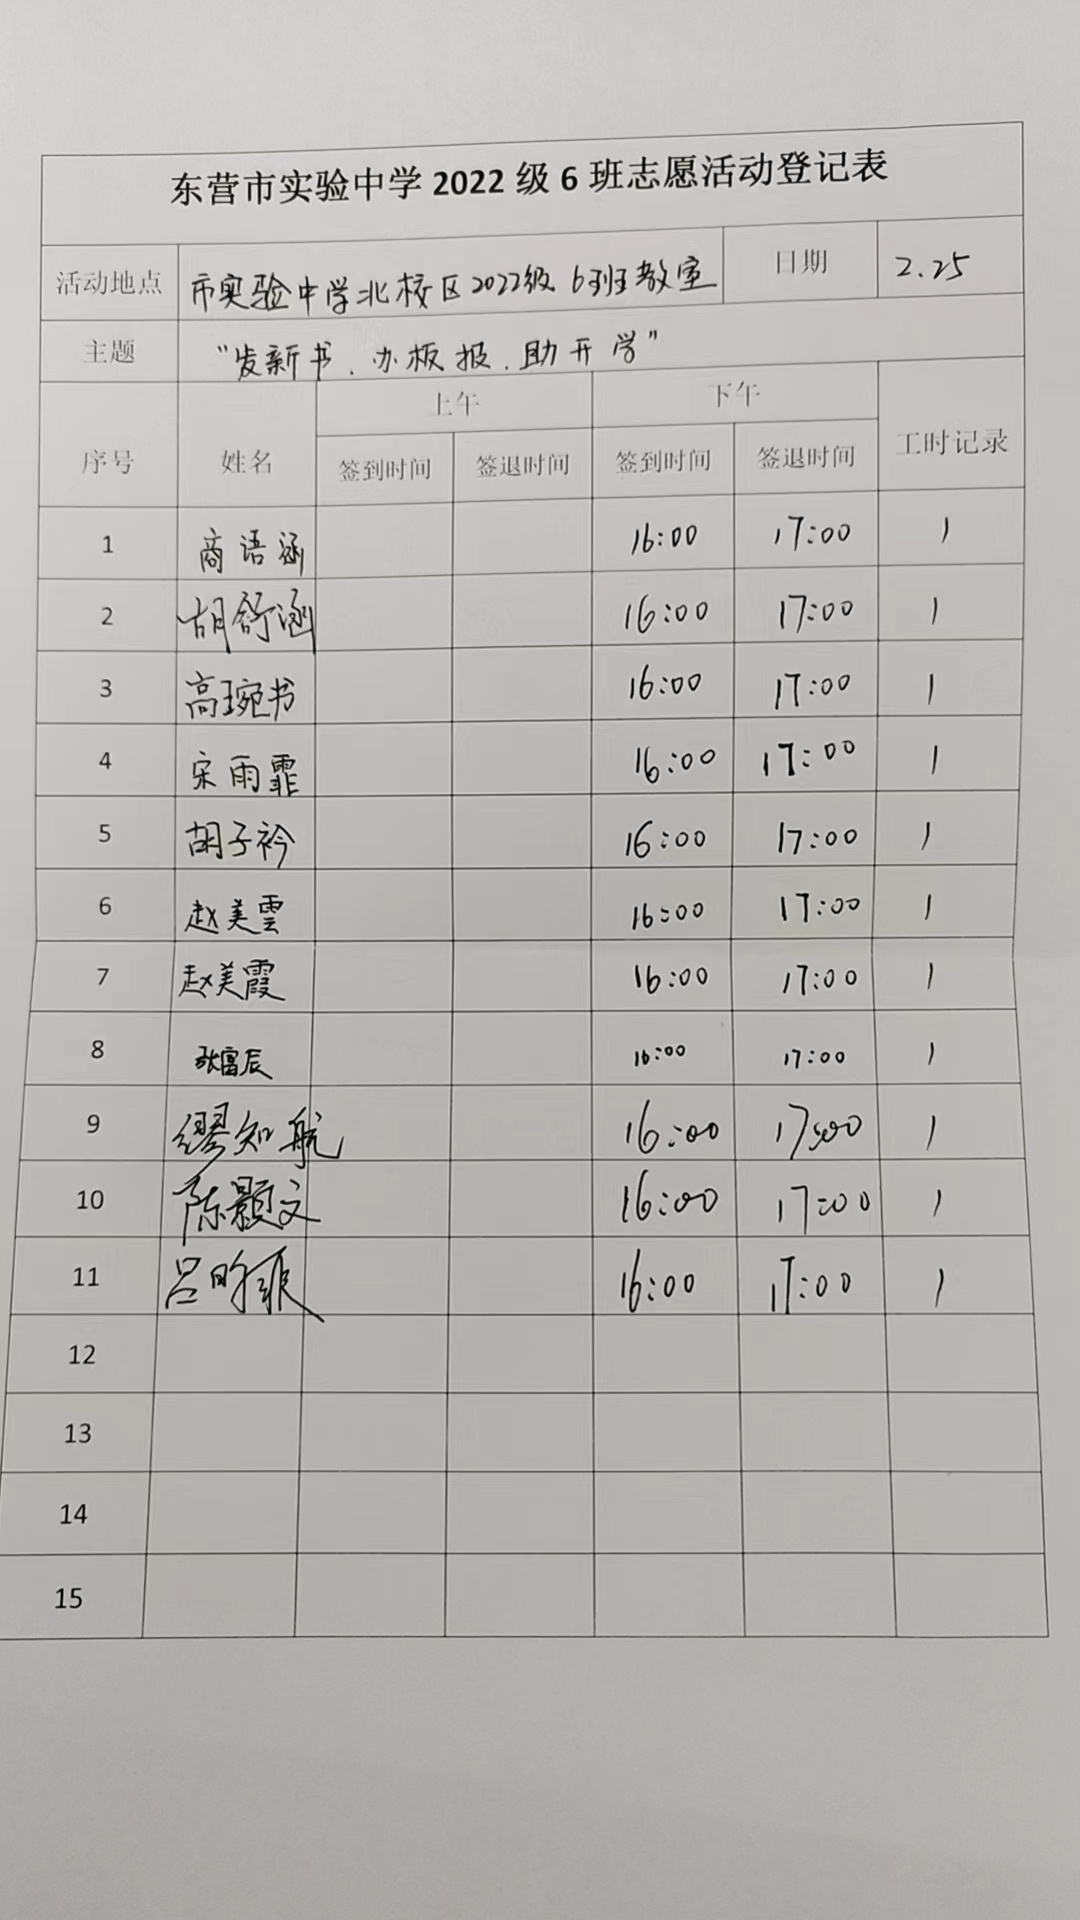 东营市实验中学 2022 级 6 班志愿活动登记表
活动地点 市实验中学北校区2022级 6班教室 日期 2.25
主题 “发新书、办板报、助开学”
序号 姓名 上午 下午 工时记录
签到时间 签退时间 签到时间 签退时间
1 商语涵 16:00 17:00 1
2 胡舒涵 16:00 17:00 1
3 高琬书 16:00 17:00 1
4 宋雨霏 16:00 17:00 1
5 胡子衿 16:00 17:00 1
6 赵美雲 16:00 17:00 1
7 赵美霞 16:00 17:00 1
8 张富辰 16:00 17:00 1
9 缪知航 16:00 17:00 1
10 陈颢文 16:00 17:00 1
11 吕昀 16:00 17:00 1
12
13
14
15